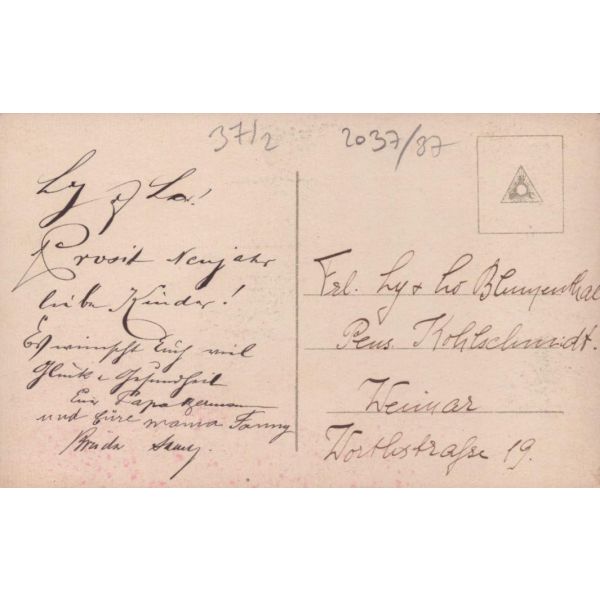 37/2
2037/87
Ly & Lo!
Prosit Neujahr
liebe Kinder!
Es wünscht Euch viel
Glück & Gesundheit
Euer Papa Hermann
und Eüre mama Fanny
Bruder
Frl. Ly & Lo Blumenthal
Pens. Kohlschmidt.
Weimar
Wörthstraße 19.